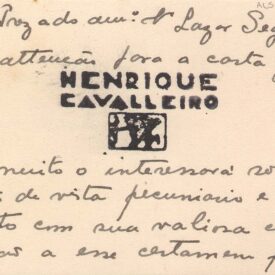 Prezado am.º Lazar Seg
attenção para a carta
HENRIQUE
CAVALLEIRO
muito o interessará so
de vista pecuniario e
to com sua valiosa c
a esse certamen p